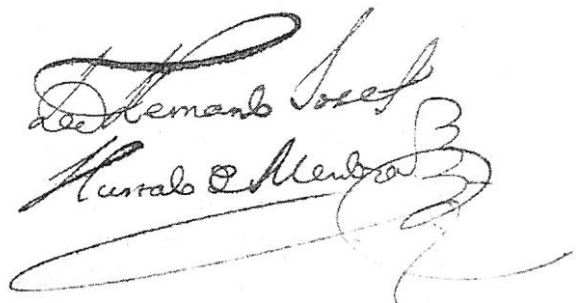 Fernando Josef
Hurtado de Mendoza